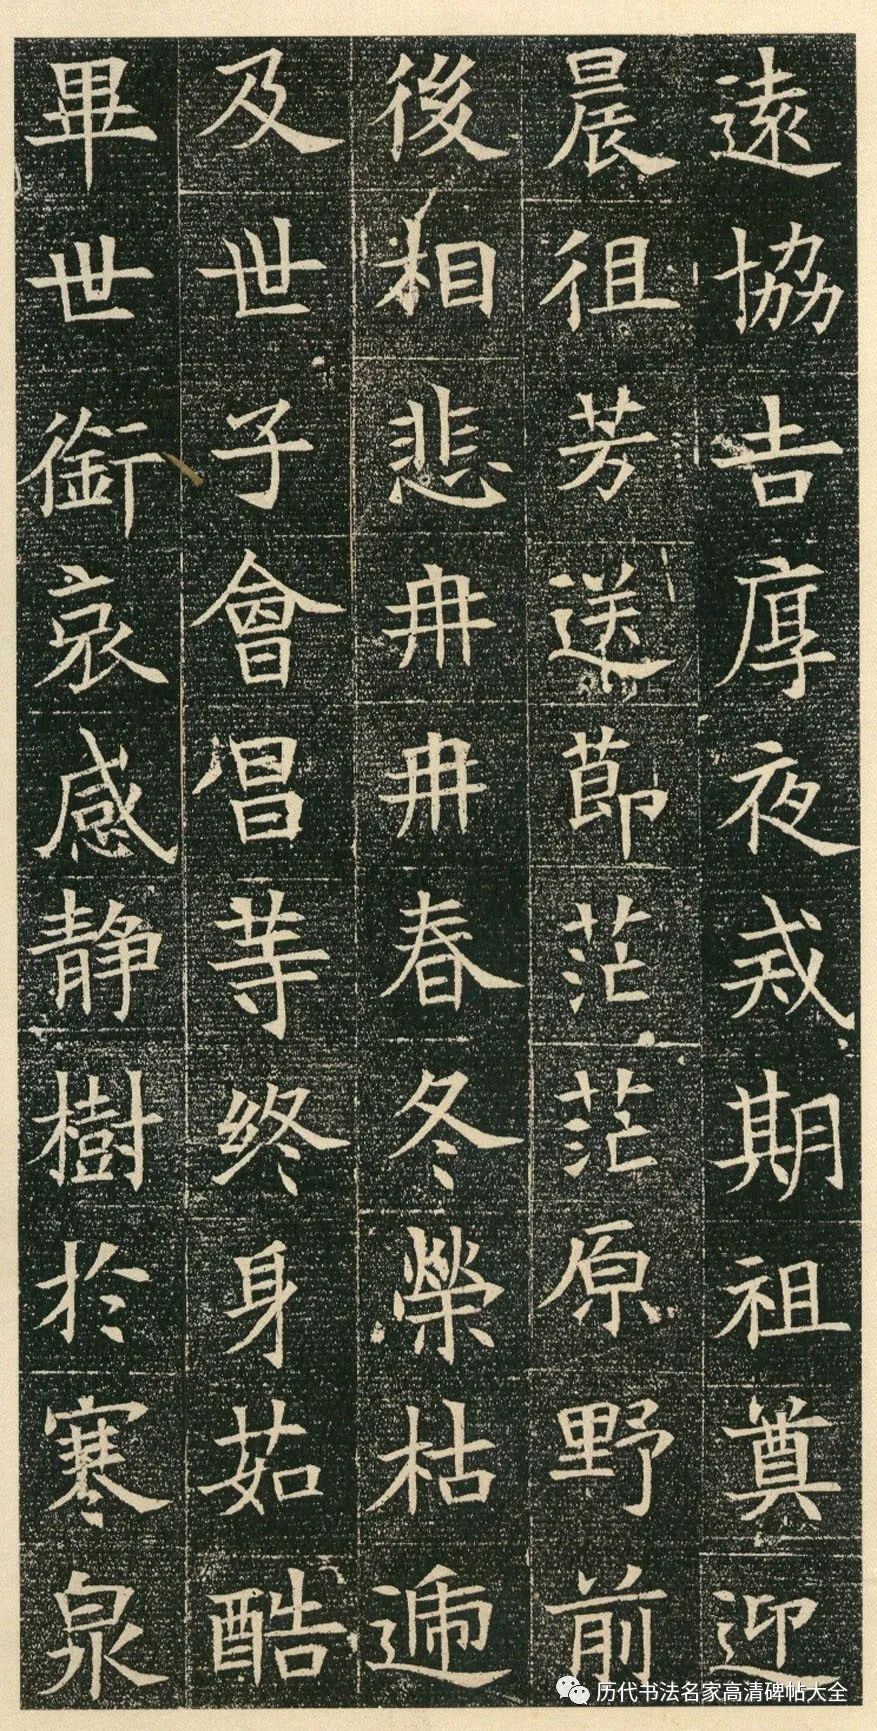 遠協吉厚夜戒期祖奠迎
晨徂芳送節茫茫原野前
後相悲冉冉春冬榮枯遞
及世子會昌等終身茹酷
畢世銜哀感静樹於寒泉
历代书法名家高清碑帖大全